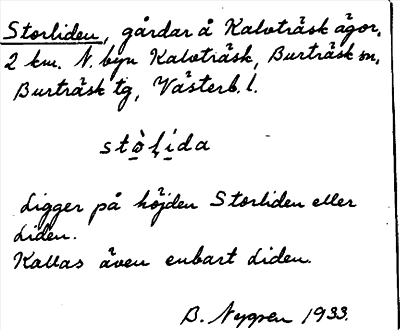 Storliden, gårdar å Kalvträsk ägor,
2 km. N. byn Kalvträsk, Burträsk sn,
Burträsk tg, Västerb. l.
stò̱ḷi̱da
Ligger på höjden Storliden eller
Liden.
Kallas även enbart Liden.
B. Nygren 1933.